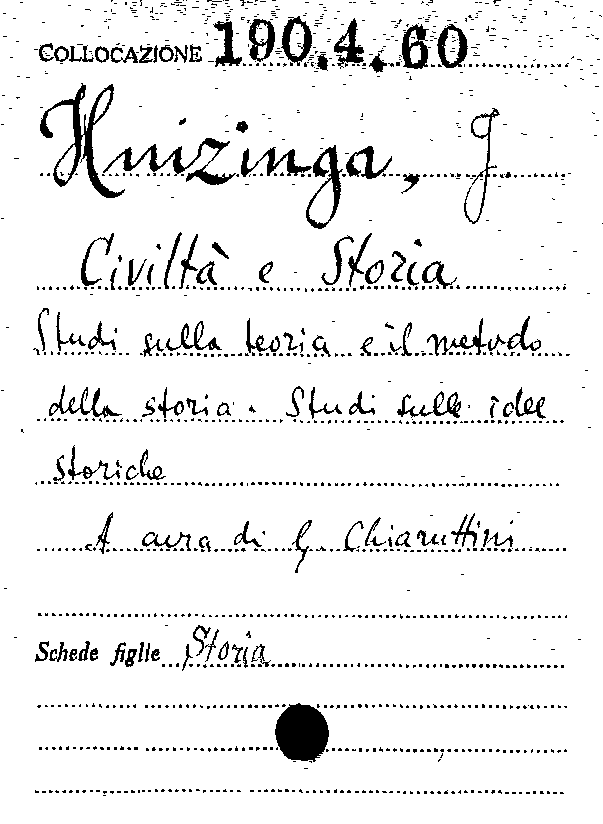 COLLOCAZIONE 190.4.60
Huizinga, J.
Civiltà e Storia
Studi sulla teoria e il metodo
della storia. Studi sulle idee
storiche
A cura di G. Chiaruttini
Schede figlie Storia